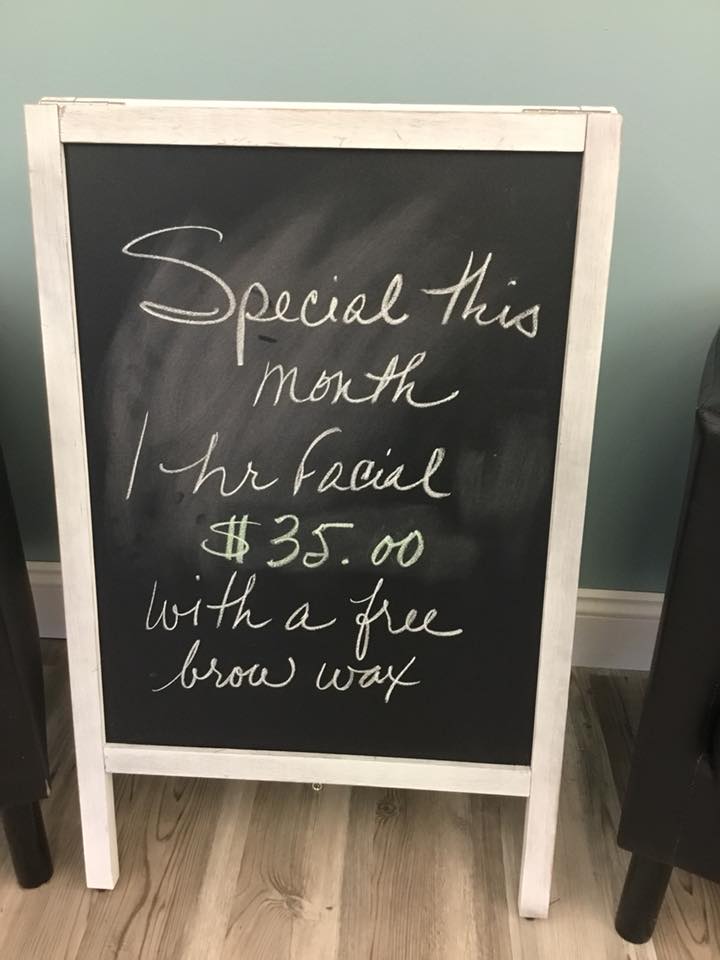 Special this
month
1 hr Facial
$35.00
with a free
brow wax